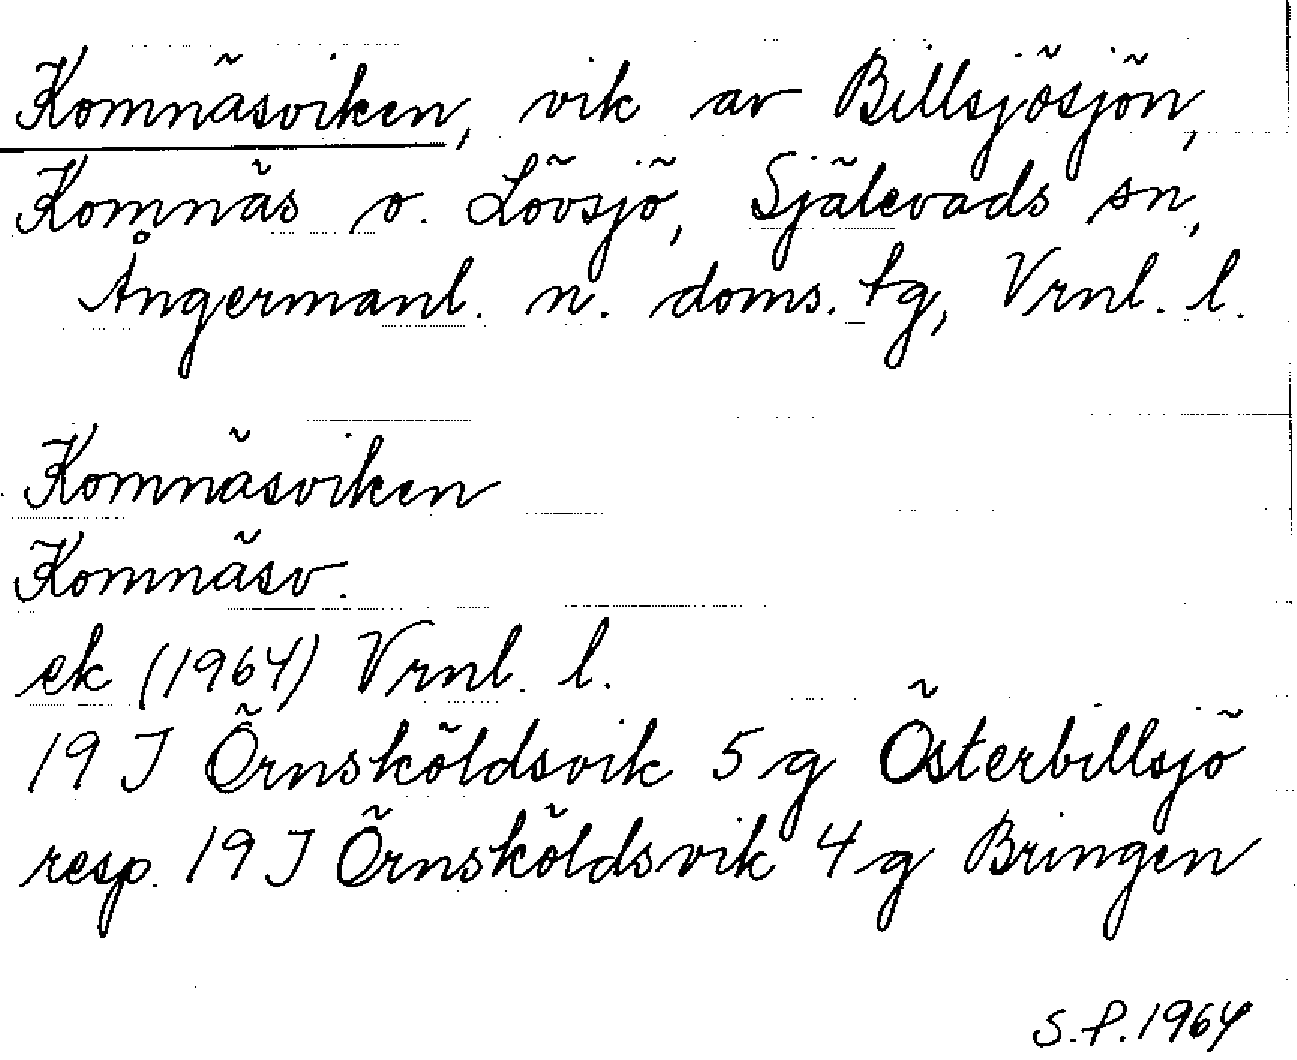 Komnäsviken, vik av Billsjösjön,
Komnäs o. Lövsjö, Själevads sn,
Ångermanl. n. doms. tg, Vrnl. l.
Komnäsviken
Komnäsv.
ek (1964) Vrnl. l.
19 J Örnsköldsvik 5 g Österbillsjö
resp. 19 J Örnsköldsvik 4 g Bringen
S.P. 1964